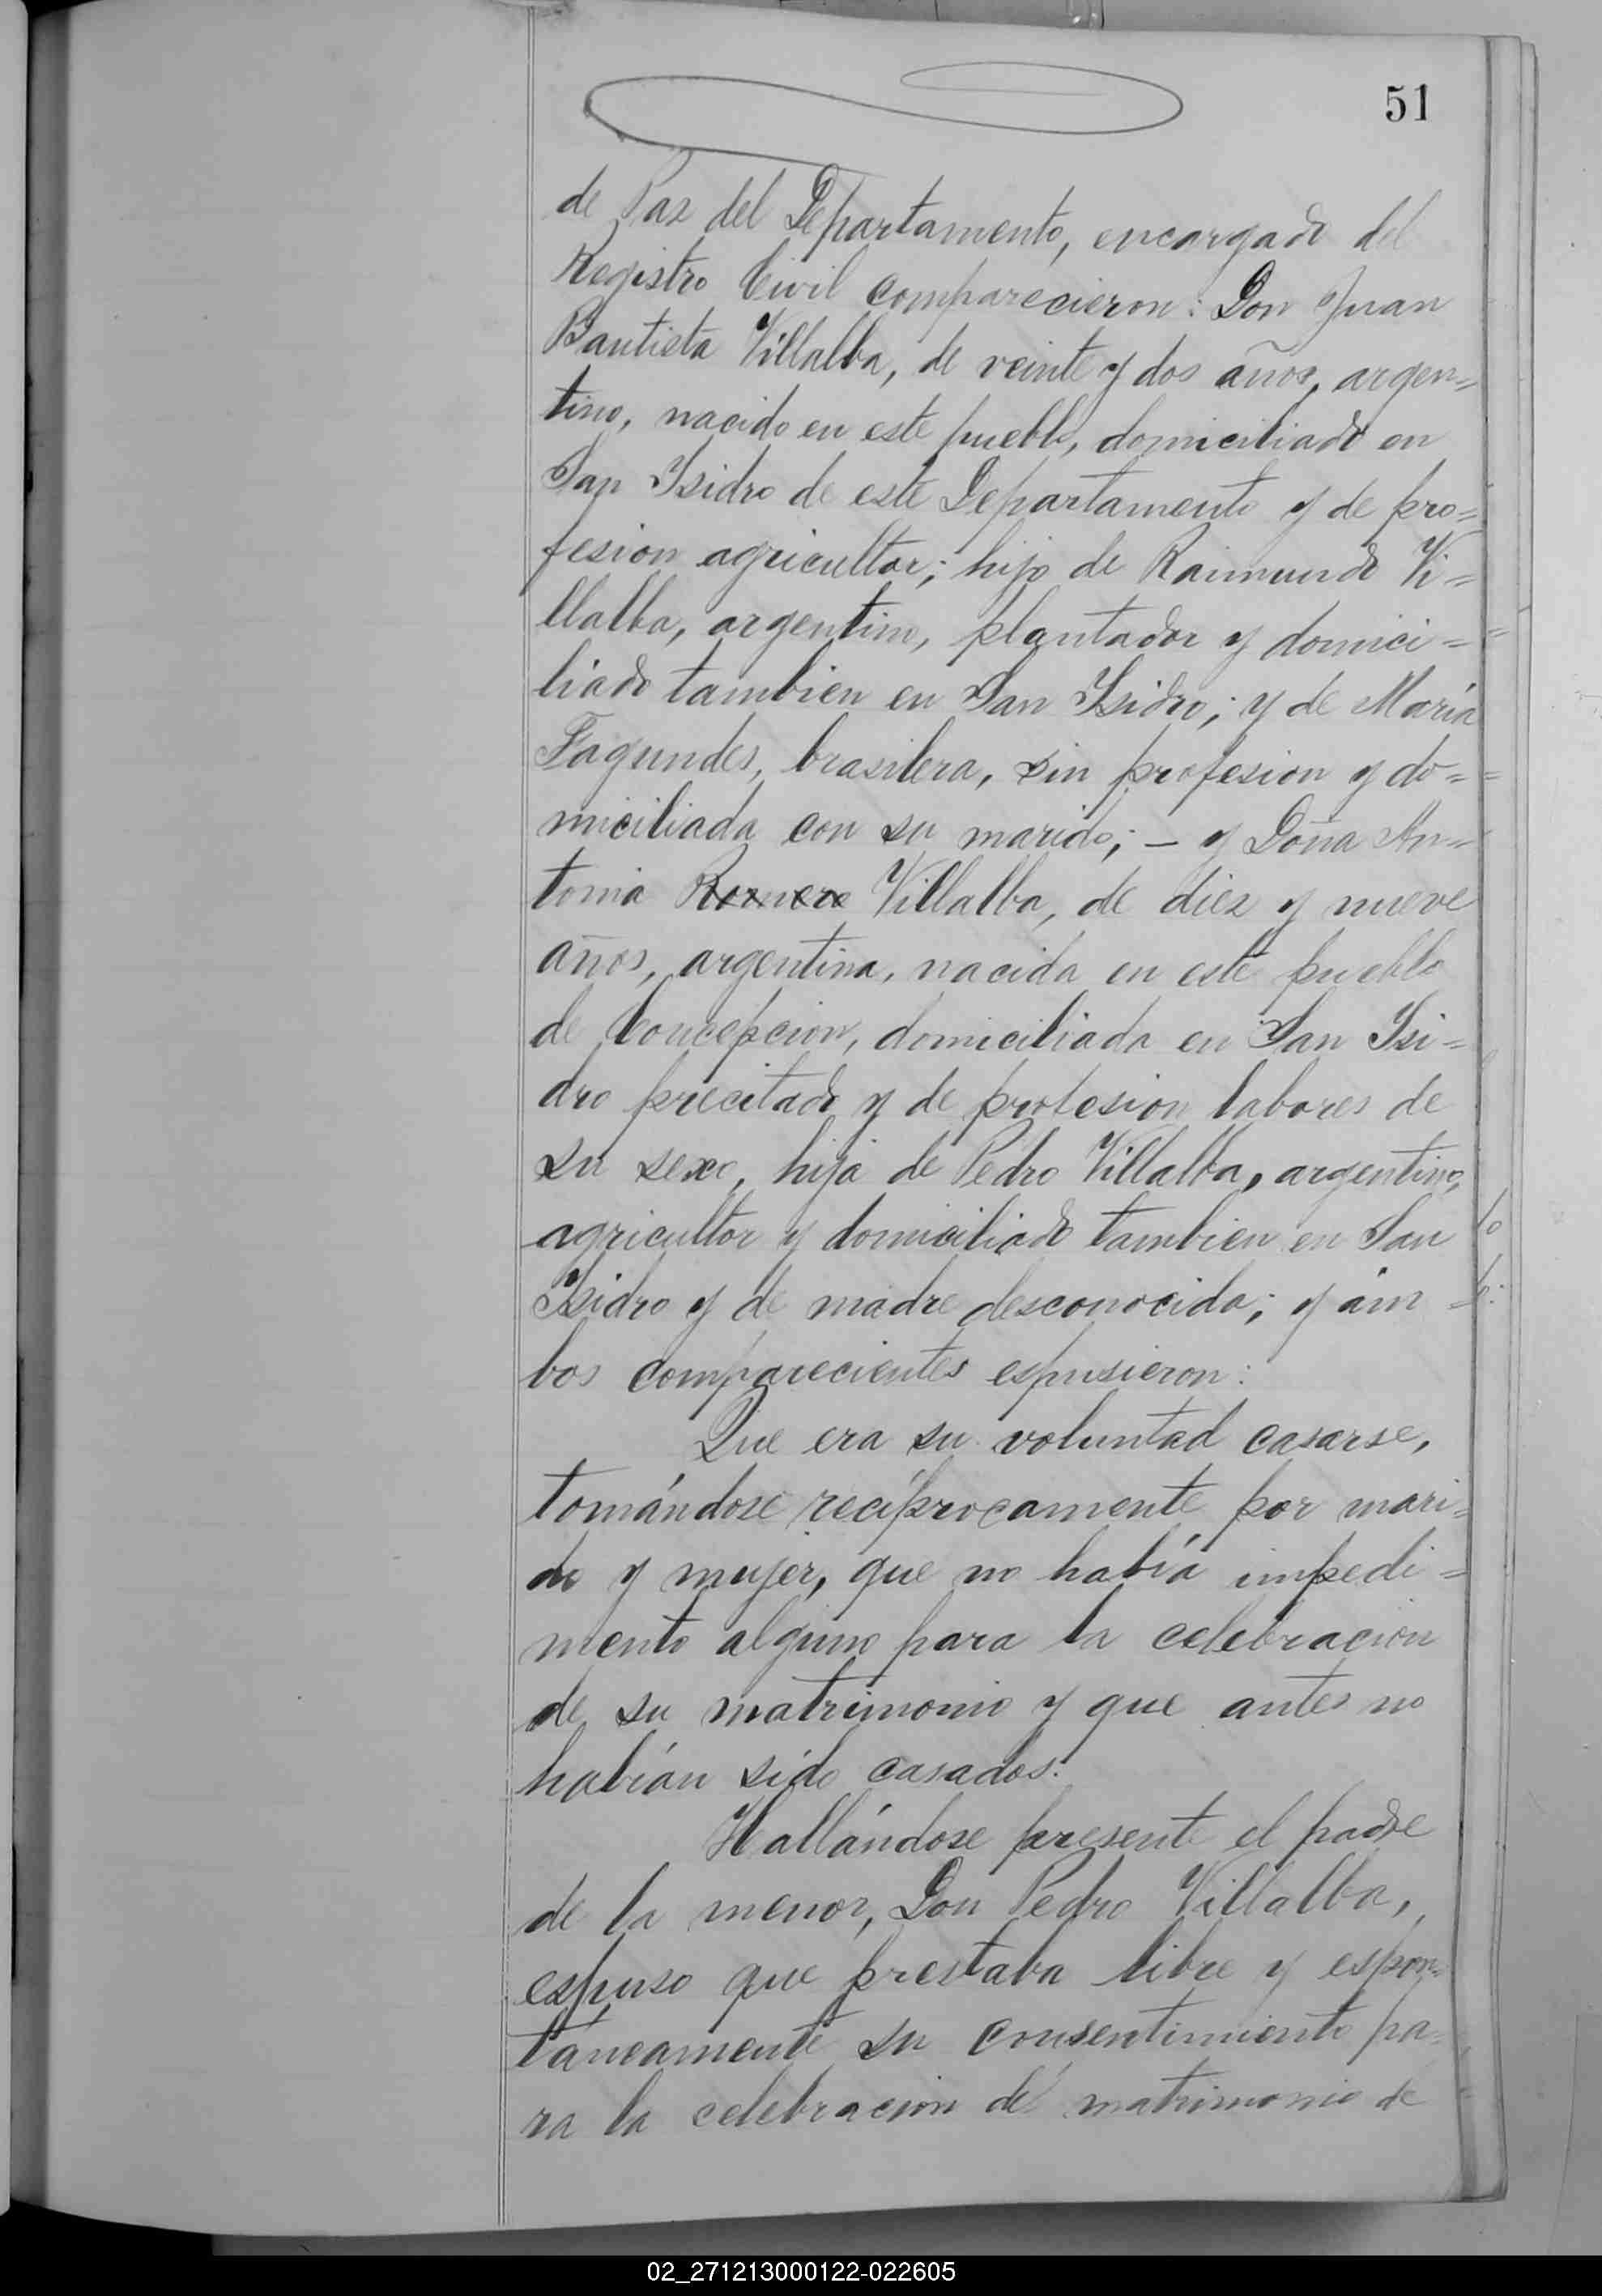 51
de Paz del Departamento, encargado del
Registro Civil comparecieron: Don Juan
Bautista Villalba, de veinte y dos años, argen=
tino, nacido en este pueblo, domiciliado en
San Isidro de este Departamento y de pro=
fesion agricultor; hijo de Raimundo Vi=
llalba, argentino, plantador y domici=
liado tambien en San Isidro; y de María
Fagundes, brasilera, sin profesion y do=
miciliada con su marido; – y Doña An=
tonia Romero Villalba, de diez y nueve
años, argentina, nacida en este pueblo
de Concepcion, domiciliada en San Isi=
dro precitado y de profesion labores de
su sexo, hija de Pedro Villalba, argentino,
agricultor y domiciliado tambien en San
Isidro y de madre desconocida; y ám=
bos comparecientes espusieron:
Que era su voluntad casarse,
tomándose recíprocamente por mari=
do y mujer, que no había impedi=
mento alguno para la celebracion
de su matrimonio y que antes no
habían sido casados.
Hallándose presente el padre
de la menor, Don Pedro Villalba,
espuso que prestaba libre y espon=
táneamente su consentimiento pa=
ra la celebracion del matrimonio de
02_271213000122-022605